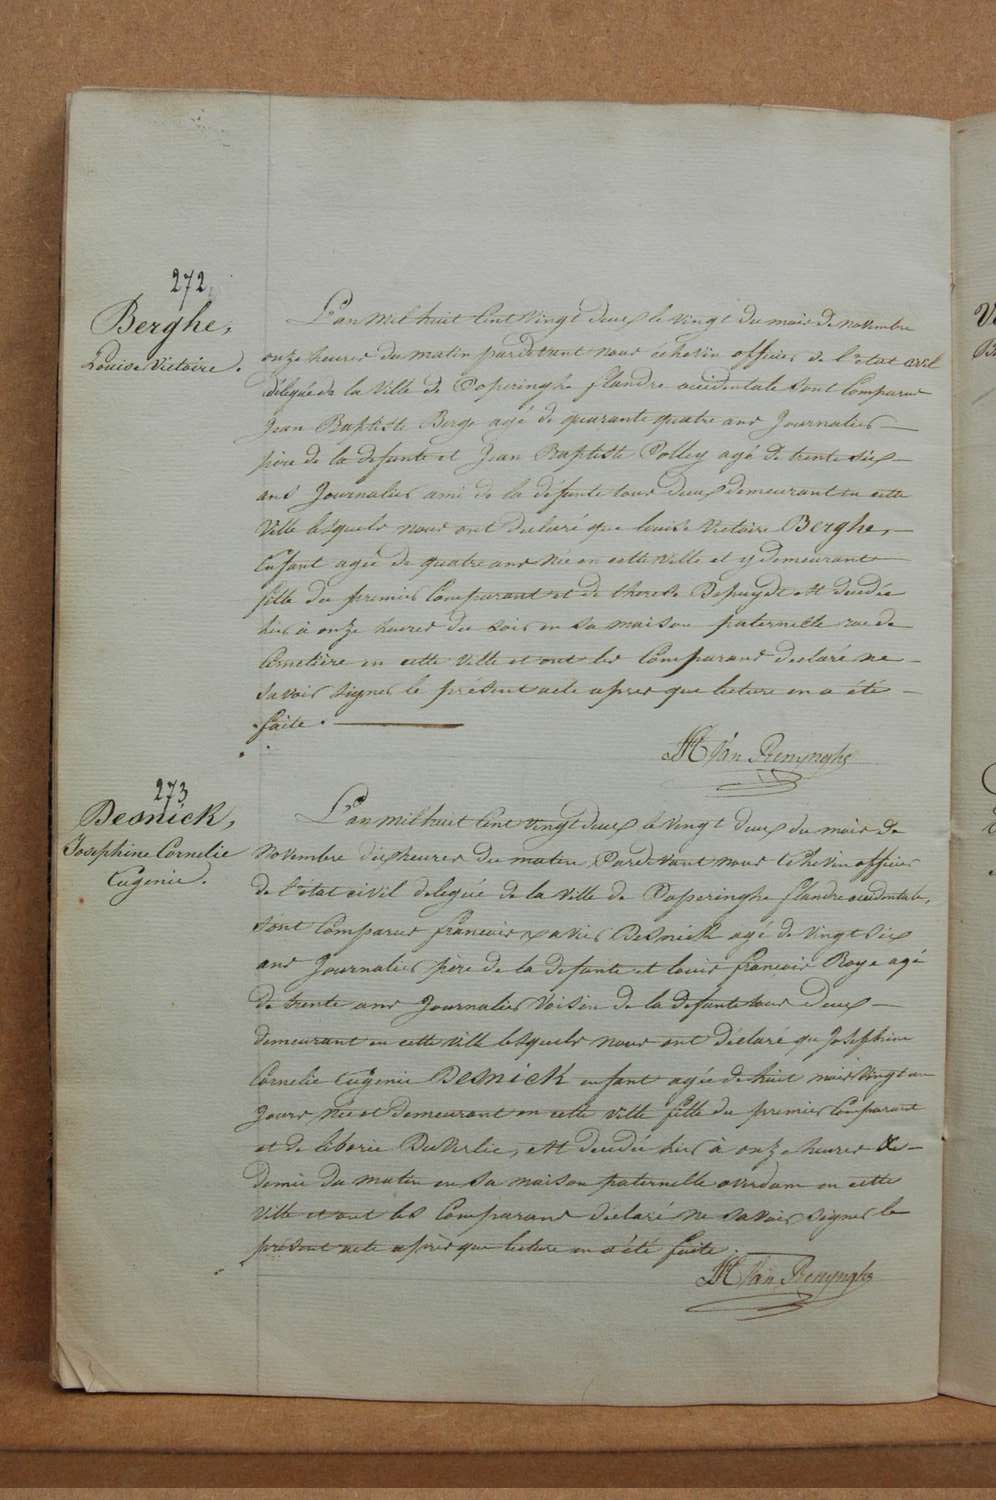 272
Berghe,
Louise Victoire.
L'an mil huit Cent Vingt deux le vingt du mois de novembre
onze heures du matin pardevant nous échevin officier de l'état civil
délégué de la Ville de Poperinghe flandre occidentale sont Comparus
Jean Baptiste Berge agé de quarante quatre ans Journalier
père de la defunte et Jean Baptiste Polley agé de trente six
ans Journalier ami de la défunte tous deux demeurant en cette
Ville lesquels nous ont declaré que Louise Victoire Berghe,
Enfant agée de quatre ans née en cette Ville et y demeurant
fille du premier Comparant et de therese Depuydt est decedée
hier à onze heures du soir en sa maison paternelle rue de
Cemetière en cette Ville et ont les Comparans declaré ne
savoir signer le présent acte apres que lecture en a été
faite.
Van Renynghe
273
Desnick,
Josephine Cornelie
Eugenie.
L'an mil huit Cent Vingt deux le Vingt deux du mois de
Novembre dix heures du matin Pardevant nous Echevin officier
de l'état civil delegué de la Ville de Poperinghe flandre occidentale,
sont Comparus francois xavier Desnick agé de Vingt six
ans Journalier père de la defunte et louis francois Roye agé
de trente ans Journalier Voisin de la defunte tous deux
demeurant en cette Ville lesquels nous ont déclaré que Josephine
Cornelie Eugenie Desnick enfant agée de huit mois Vingt un
Jours née et demeurant en cette Ville fille du premier Comparant
et de liberie est decedée hier à onze heures &
demie du matin en sa maison paternelle overdam en cette
Ville et ont les Comparans déclaré ne savoir signer le
présent acte après que lecture en a été faite.
Van Renynghe